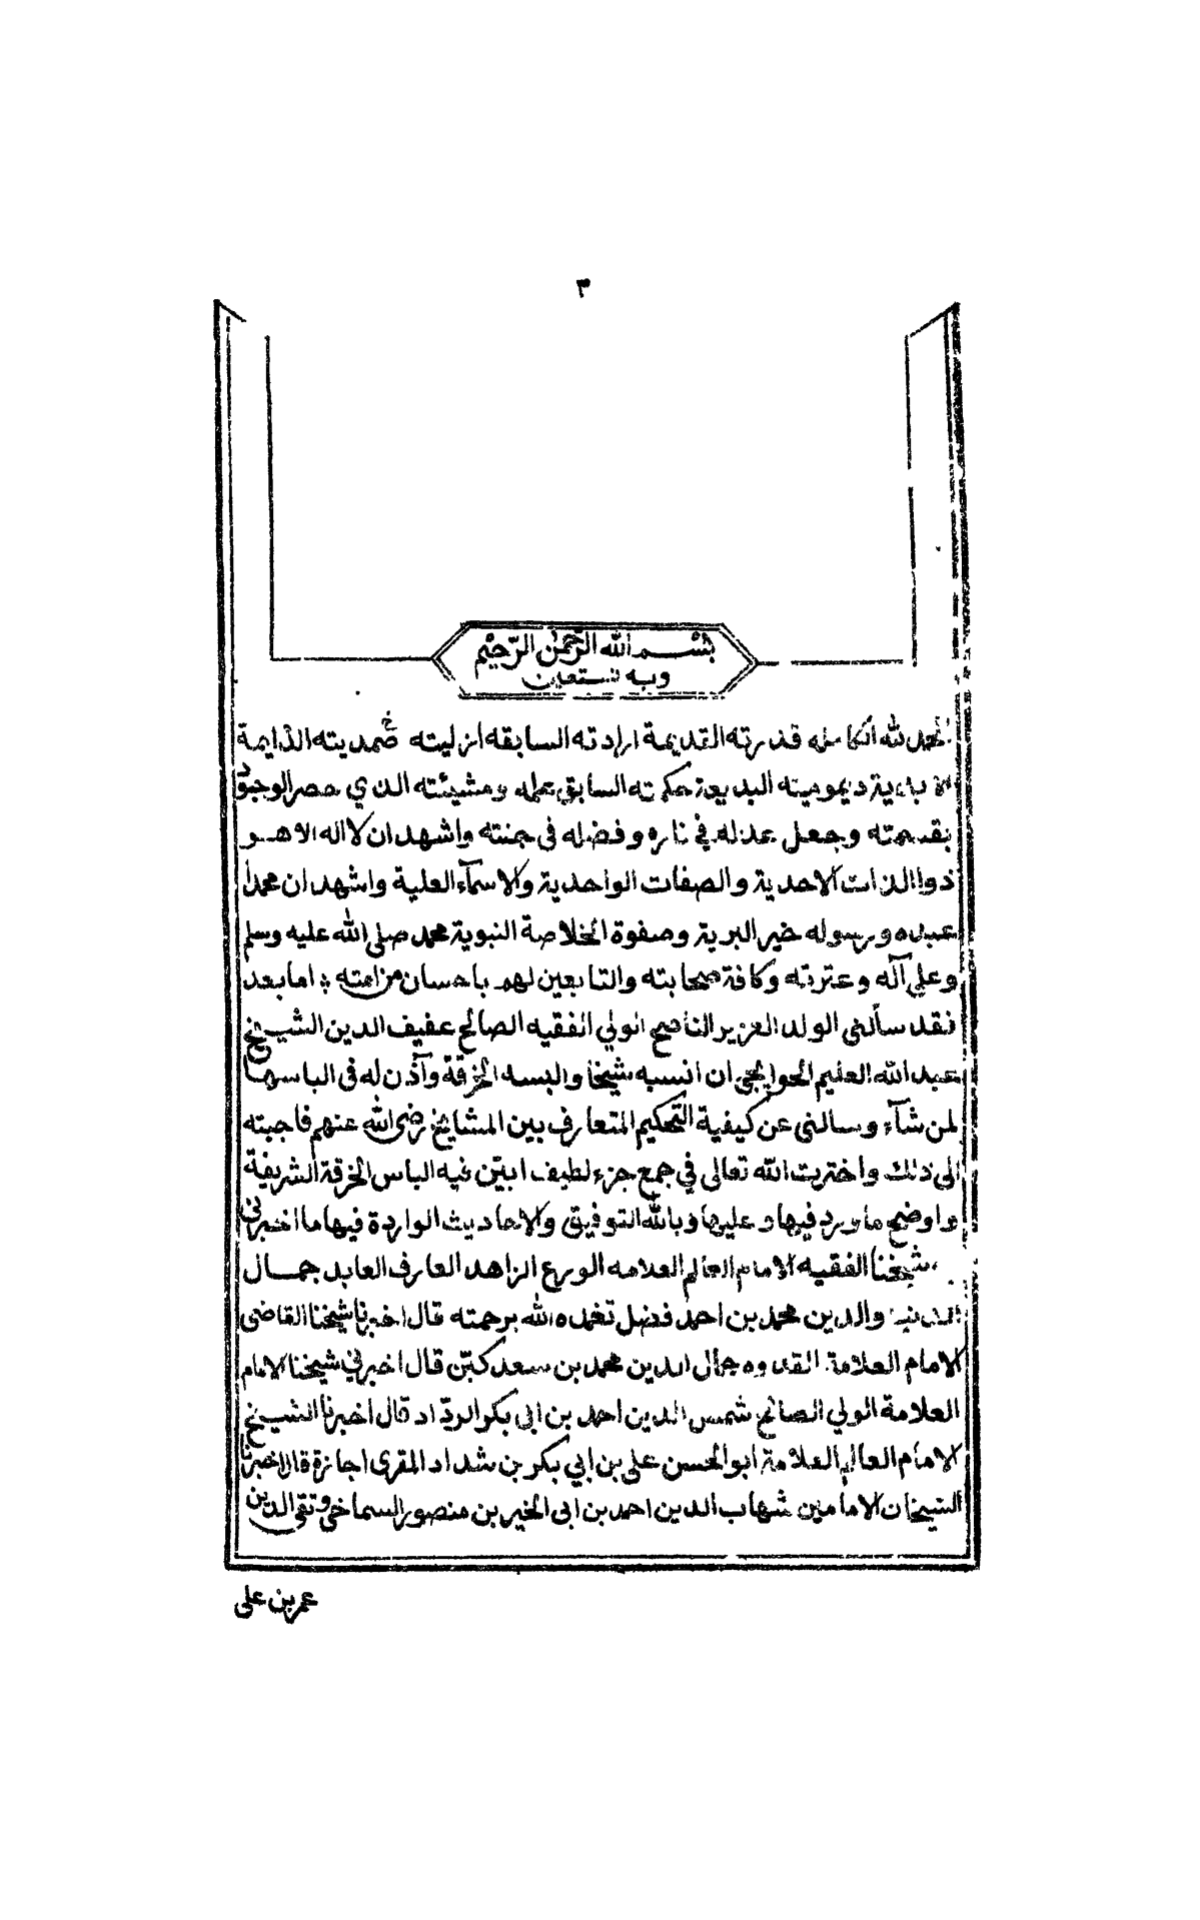 ٣
بسم الله الرحمن الرحيم
وبه نستعين
الحمد لله الكامله قدرته القديمة ارادته السابقه ازليته صمديته الدايمة
ديموميته البديعة حكمته السابق علمه ومشيئته الذي حصر الوجود
بقسمته وجعل عدله في ناره وفضله في جنته واشهد ان لا اله الا هو
ذو الذات الاحدية والصفات الواحدية والاسمآء العلية واشهد ان محمدا
عبده ورسوله خير البرية وصفوة الخلاصة النبوية محمد صلى الله عليه وسلم
وعلى آله وعترته وكافة صحابته والتابعين لهم باحسان من امته ؛ اما بعد
فقد سألني الولد العزيز الناصح الولي الفقيه الصالح عفيف الدين الشيخ
عبد الله العليم ان انسبه شيخا والبسه الخرقة وآذن له في الباسها
لمن شآء وسالني عن كيفية التحكيم المتعارف بين المشايخ رضى الله عنهم فاجبته
الى ذلك واخترت الله تعالى في جمع جزء لطيف ابين فيه الباس الخرقة الشريفة
واوضح ما ورد فيها وعليها وبالله التوفيق والاحاديث الواردة فيها ما اخبرني
شيخنا الفقيه الامام العالم العلامه الورع الزاهد العارف العابد جمال
والدين محمد بن احمد فضل تغمده الله برحمته قال اخبرنا شيخنا القاضى
الامام العلامة القدوه جمال الدين محمد بن سعد كبّن قال اخبرني شيخنا الامام
العلامة الولي الصالح شمس الدين احمد بن ابي بكر الردّاد قال اخبرنا الشيخ
الامام العالم العلامة ابو الحسن علي بن ابي بكر بن شداد المقرى اجازة قال اخبرنا
الشيخان الامامين شهاب الدين احمد بن ابى الخير بن منصور السماخى وتقى الدين
عمر بن على